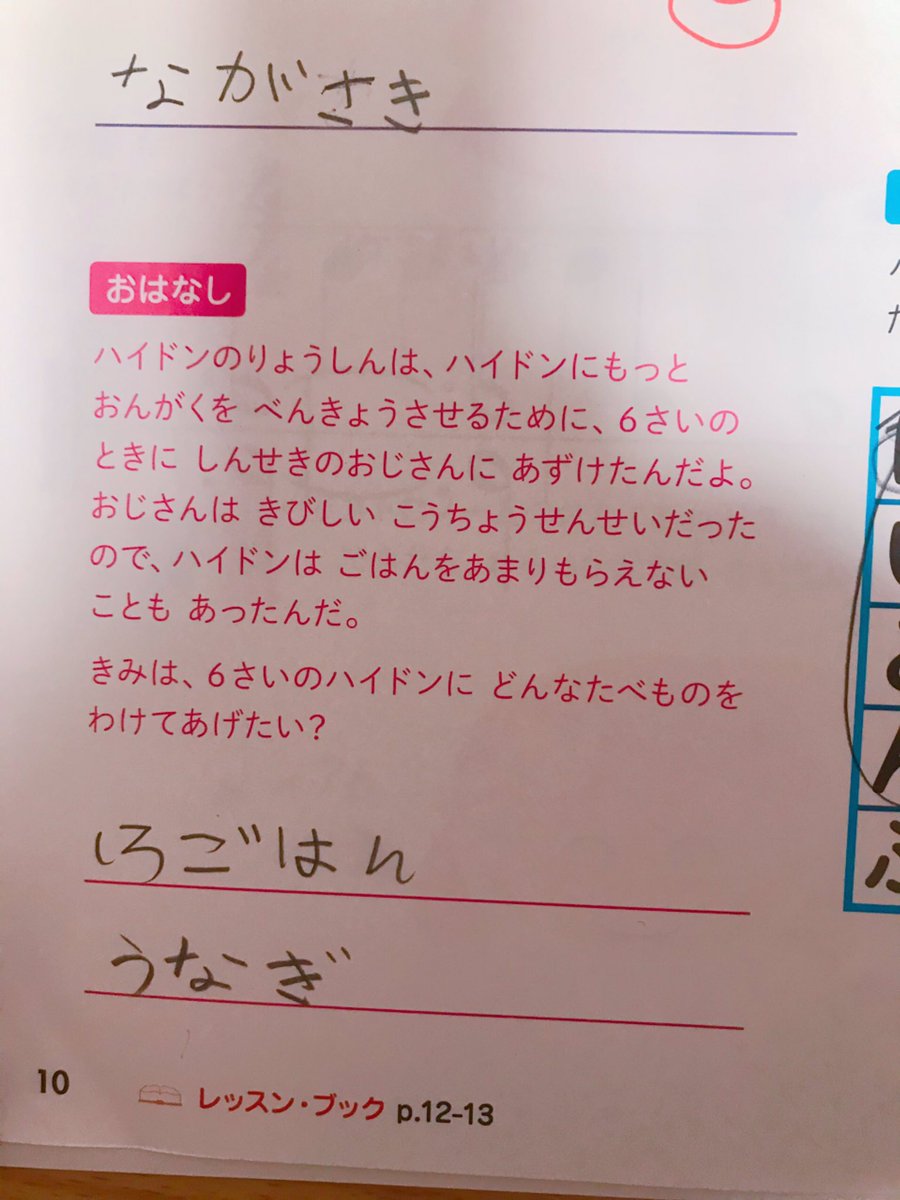 ながさき
おはなし
ハイドンのりょうしんは、ハイドンにもっと
おんがくを べんきょうさせるために、6さいの
ときに しんせきのおじさんに あずけたんだよ。
おじさんは きびしい こうちょうせんせいだった
ので、ハイドンは ごはんをあまりもらえない
ことも あったんだ。
きみは、6さいのハイドンに どんなたべものを
わけてあげたい?
しろごはん
うなぎ
10 レッスン・ブック p.12-13